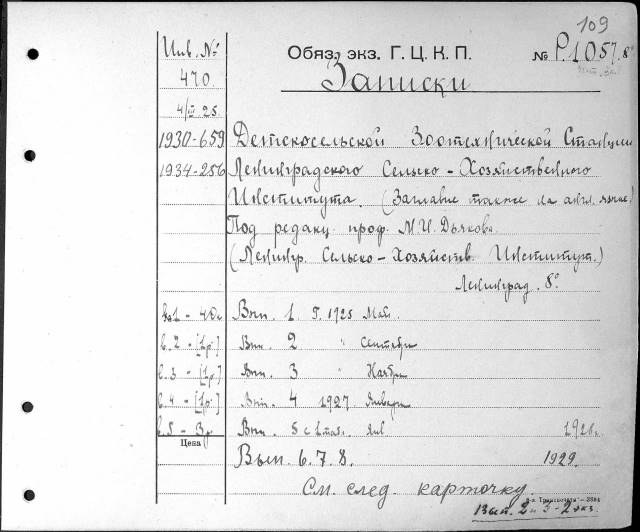 109
Инв. №
Обяз. экз. Г. Ц. К. П.
№ Р.1057. 8°
470
Записки
4/III 25
1930-659 Детскосельской Зоотехнической Станции
1934-256 Ленинградского Сельско-Хозяйственного
Института. (Заглавие также на англ. языке.)
Под редакц. проф. М.И. Дьякова.
(Ленингр. Сельско-Хозяйств. Институт.)
Ленинград. 8°
Вып. 1. Г. 1925 Май.
в. 2 - [1р.] Вып. 2 " Сентябрь
в. 3 - [1р.] Вып. 3 " Ноябрь
в. 4 - [1р.] Вып. 4 1927 Январь
в. 5 - 3р Вып. 5 с 1928.
Цена
Вып. 6. 7. 8. 1929.
См. след. карточку.
Вып. 2 и 3 - 2 экз.